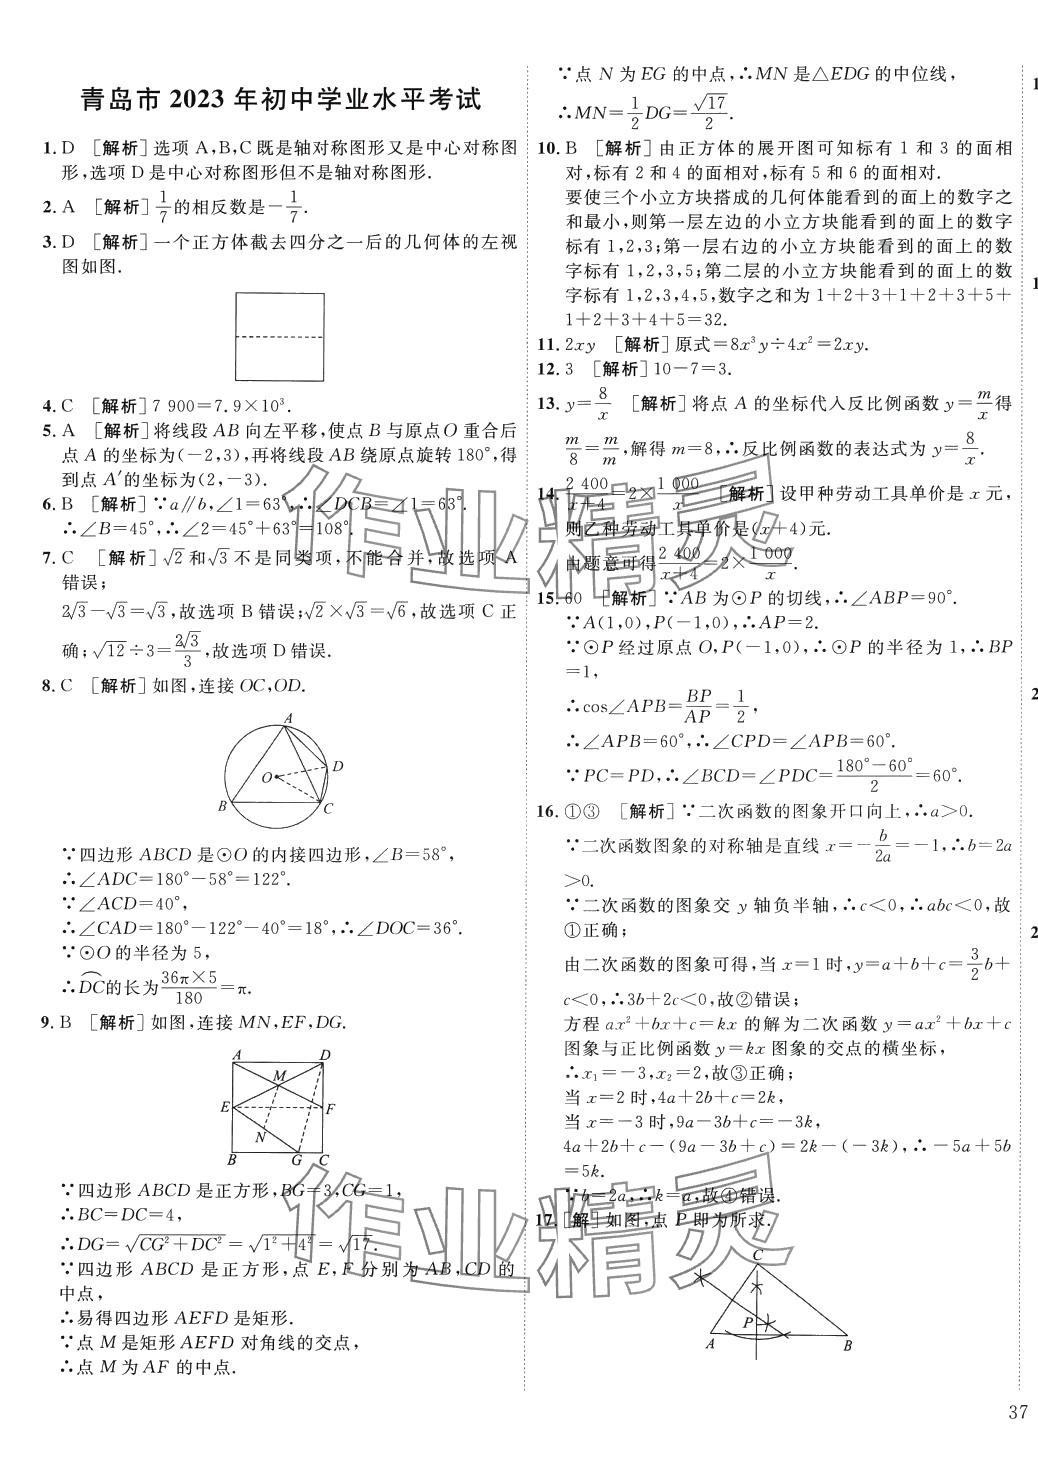 青岛市 2023 年初中学业水平考试
1. D [解析]选项 A,B,C 既是轴对称图形又是中心对称图
形,选项 D 是中心对称图形但不是轴对称图形.
2. A [解析]1/7的相反数是-1/7.
3. D [解析]一个正方体截去四分之一后的几何体的左视
图如图.
4. C [解析]7 900=7.9×10³.
5. A [解析]将线段 AB 向左平移,使点 B 与原点O 重合后
点 A 的坐标为(-2,3),再将线段 AB 绕原点旋转 180°,得
到点 A′的坐标为(2,-3).
6. B [解析]∵a∥b,∠1=63°,∴∠DCB=∠1=63°.
∴∠B=45°,∴∠2=45°+63°=108°.
7. C [解析]√2和√3不是同类项,不能合并,故选项 A
错误;
2√3-√3=√3,故选项 B 错误;√2×√3=√6,故选项 C 正
确;√12÷3=2√3/3,故选项 D 错误.
8. C [解析]如图,连接 OC,OD.
A
D
O
B
C
∵四边形 ABCD 是⊙O 的内接四边形,∠B=58°,
∴∠ADC=180°-58°=122°.
∵∠ACD=40°,
∴∠CAD=180°-122°-40°=18°,∴∠DOC=36°.
∵⊙O 的半径为 5,
∴DC的长为36π×5/180=π.
9. B [解析]如图,连接 MN,EF,DG.
A D
M
E F
N
B G C
∵四边形 ABCD 是正方形,BG=3,CG=1,
∴BC=DC=4,
∴DG=√CG²+DC²=√1²+4²=√17.
∵四边形 ABCD 是正方形,点 E,F 分别为 AB,CD 的
中点,
∴易得四边形 AEFD 是矩形.
∵点 M 是矩形 AEFD 对角线的交点,
∴点 M 为 AF 的中点.
∵点 N 为 EG 的中点,∴MN 是△EDG 的中位线,
∴MN=1/2DG=√17/2.
10. B [解析]由正方体的展开图可知标有 1 和 3 的面相
对,标有 2 和 4 的面相对,标有 5 和 6 的面相对.
要使三个小立方块搭成的几何体能看到的面上的数字之
和最小,则第一层左边的小立方块能看到的面上的数字
标有 1,2,3;第一层右边的小立方块能看到的面上的数
字标有 1,2,3,5;第二层的小立方块能看到的面上的数
字标有 1,2,3,4,5,数字之和为 1+2+3+1+2+3+5+
1+2+3+4+5=32.
11. 2xy [解析]原式=8x³y÷4x²=2xy.
12. 3 [解析]10-7=3.
13. y=8/x [解析]将点 A 的坐标代入反比例函数 y=m/x得
m/8=m/m,解得 m=8,∴反比例函数的表达式为 y=8/x.
14. 2 400/x+4=2×1 000/x [解析]设甲种劳动工具单价是 x 元,
则乙种劳动工具单价是(x+4)元.
由题意可得2 400/x+4=2×1 000/x.
15. 60 [解析]∵AB 为⊙P 的切线,∴∠ABP=90°.
∵A(1,0),P(-1,0),∴AP=2.
∵⊙P 经过原点 O,P(-1,0),∴⊙P 的半径为 1,∴BP
=1,
∴cos∠APB=BP/AP=1/2,
∴∠APB=60°,∴∠CPD=∠APB=60°.
∵PC=PD,∴∠BCD=∠PDC=180°-60°/2=60°.
16. ①③ [解析]∵二次函数的图象开口向上,∴a>0.
∵二次函数图象的对称轴是直线 x=-b/2a=-1,∴b=2a
>0.
∵二次函数的图象交 y 轴负半轴,∴c<0,∴abc<0,故
①正确;
由二次函数的图象可得,当 x=1 时,y=a+b+c=3/2b+
c<0,∴3b+2c<0,故②错误;
方程 ax²+bx+c=kx 的解为二次函数 y=ax²+bx+c
图象与正比例函数 y=kx 图象的交点的横坐标,
∴x₁=-3,x₂=2,故③正确;
当 x=2 时,4a+2b+c=2k,
当 x=-3 时,9a-3b+c=-3k,
4a+2b+c-(9a-3b+c)=2k-(-3k),∴-5a+5b
=5k.
∵b=2a,∴k=a,故④错误.
17. [解]如图,点 P 即为所求.
C
P
A
B
37
作业精灵
作业精灵